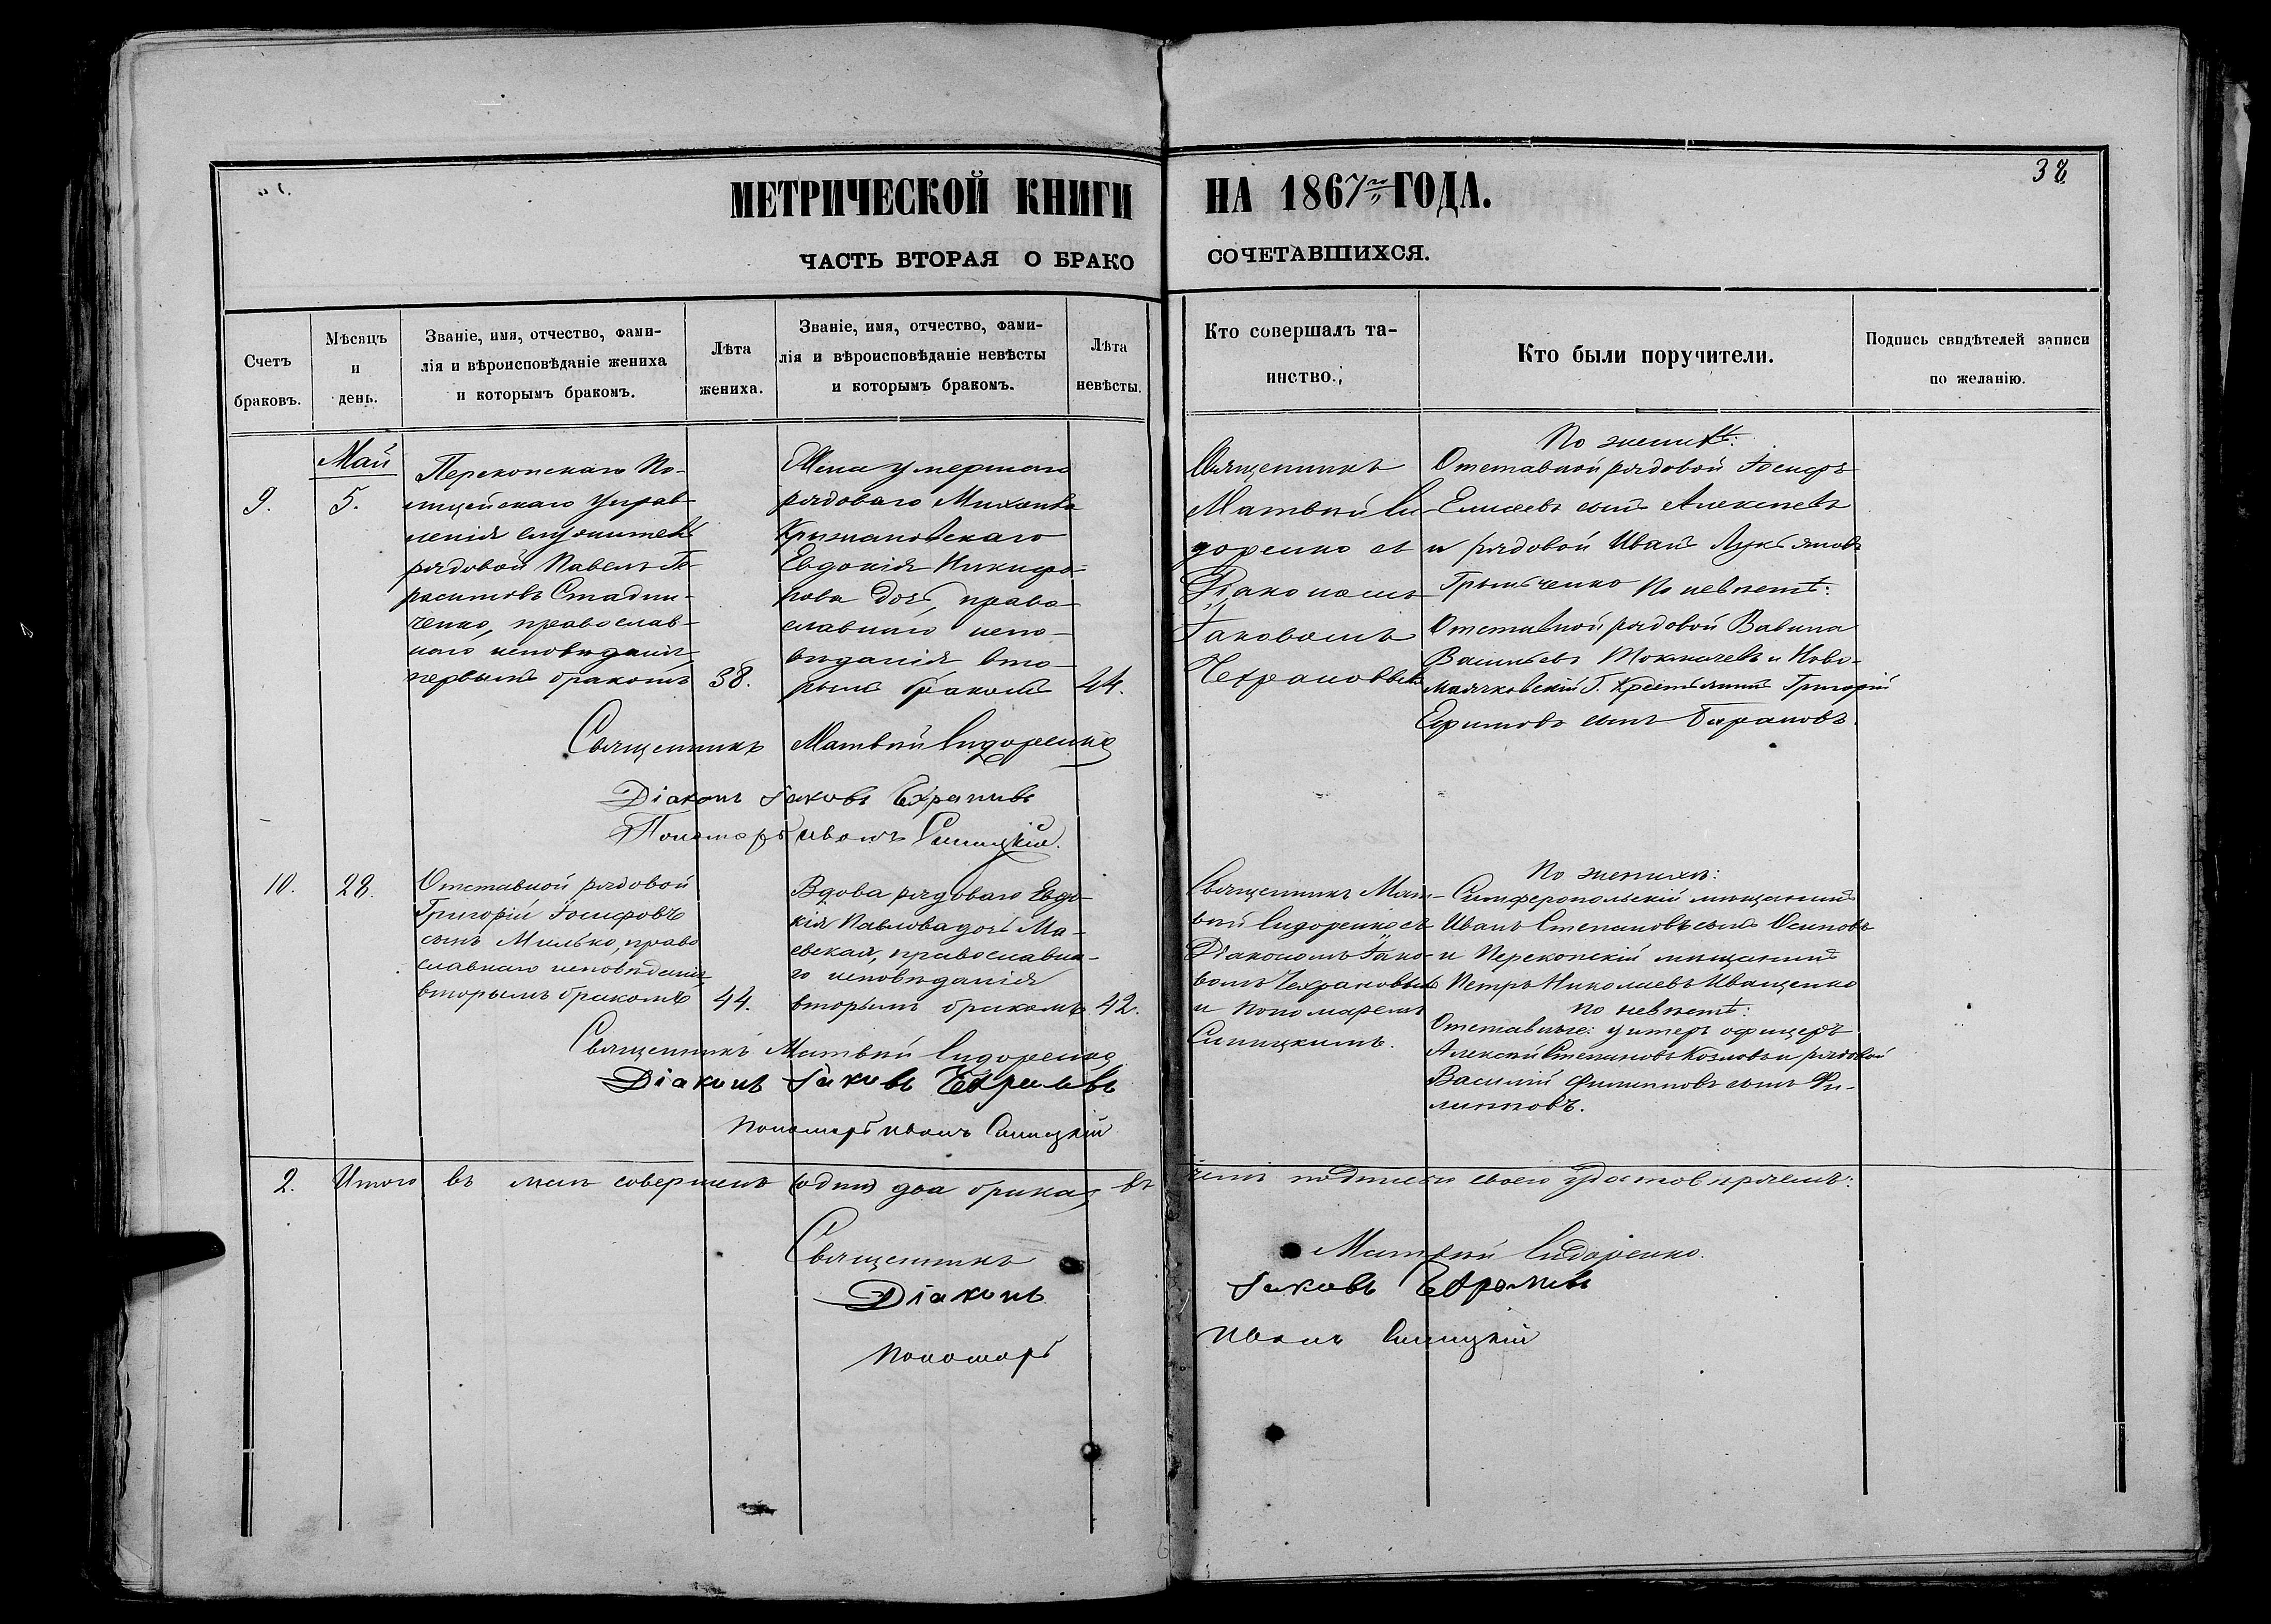 38
МЕТРИЧЕСКОЙ КНИГИ НА 1867го ГОДА.
ЧАСТЬ ВТОРАЯ О БРАКО СОЧЕТАВШИХСЯ.
Счетъ
браковъ.
Мѣсяцъ
и
день.
Званіе, имя, отчество, фами-
лія и вѣроисповѣданіе жениха
и которымъ бракомъ.
Лѣта
жениха.
Званіе, имя, отчество, фами-
лія и вѣроисповѣданіе невѣсты
и которымъ бракомъ.
Лѣта
невѣсты.
Кто совершалъ та-
инство.
Кто были поручители.
Подпись свидѣтелей записи
по желанію.
9.
Май
5.
Перекопскаго По-
лицейскаго Управ-
ленія служитель
рядовой Павелъ Ге-
расимовъ Стадни-
ченко, православ-
наго исповѣданія,
первымъ бракомъ
38.
Жена умершаго
рядоваго Михаила
Крыжановскаго
Евдокія Никифо-
рова дочь, право-
славнаго испо-
вѣданія, вто-
рымъ бракомъ
44.
Священникъ
Матвѣй Си-
доренко съ
Діакономъ
Іаковомъ
Чехрановымъ
По женихѣ:
Отставной рядовой Іосифъ
Елисеевъ сынъ Алексѣевъ
и рядовой Иванъ Лукьяновъ
Грынченко По невѣстѣ:
Отставной рядовой Вавила
Васильевъ Токмачевъ и Ново-
маячковскій Г. Крестьянинъ Григорій
Ефимовъ сынъ Барановъ.
Священникъ Матвѣй Сидоренко
Діаконъ Іаковъ Чехрановъ
Пономарь Иванъ Синицкій.
10.
28.
Отставной рядовой
Григорій Іосифовъ
сынъ Милько, право
славнаго исповѣданія,
вторымъ бракомъ
44.
Вдова рядоваго Евдо-
кія Павлова дочь Ма-
евская, православна-
го исповѣданія
вторымъ бракомъ
42.
Священникъ Мат-
вѣй Сидоренко съ
Діакономъ Іако-
вомъ Чехрановымъ
и пономаремъ
Синицкимъ.
По женихѣ:
Симферопольскій мѣщанинъ
Иванъ Степановъ сынъ Осиповъ
и Перекопскій мѣщанинъ
Петръ Николаевъ Иващенко
по невѣстѣ:
Отставные: унтеръ офицеръ
Алексѣй Степановъ Козловъ и рядовой
Василій Филипповъ сынъ Фи-
липповъ.
Священникъ Матвѣй Сидоренко
Діаконъ Іаковъ Чехрановъ
Пономарь Иванъ Синицкій
2. Итого въ маѣ совершенъ (одинъ) два брака, въ чемъ подписью своею удостовѣряемъ:
Священникъ Матвѣй Сидоренко.
Діаконъ Іаковъ Чехрановъ
Пономарь Иванъ Синицкій